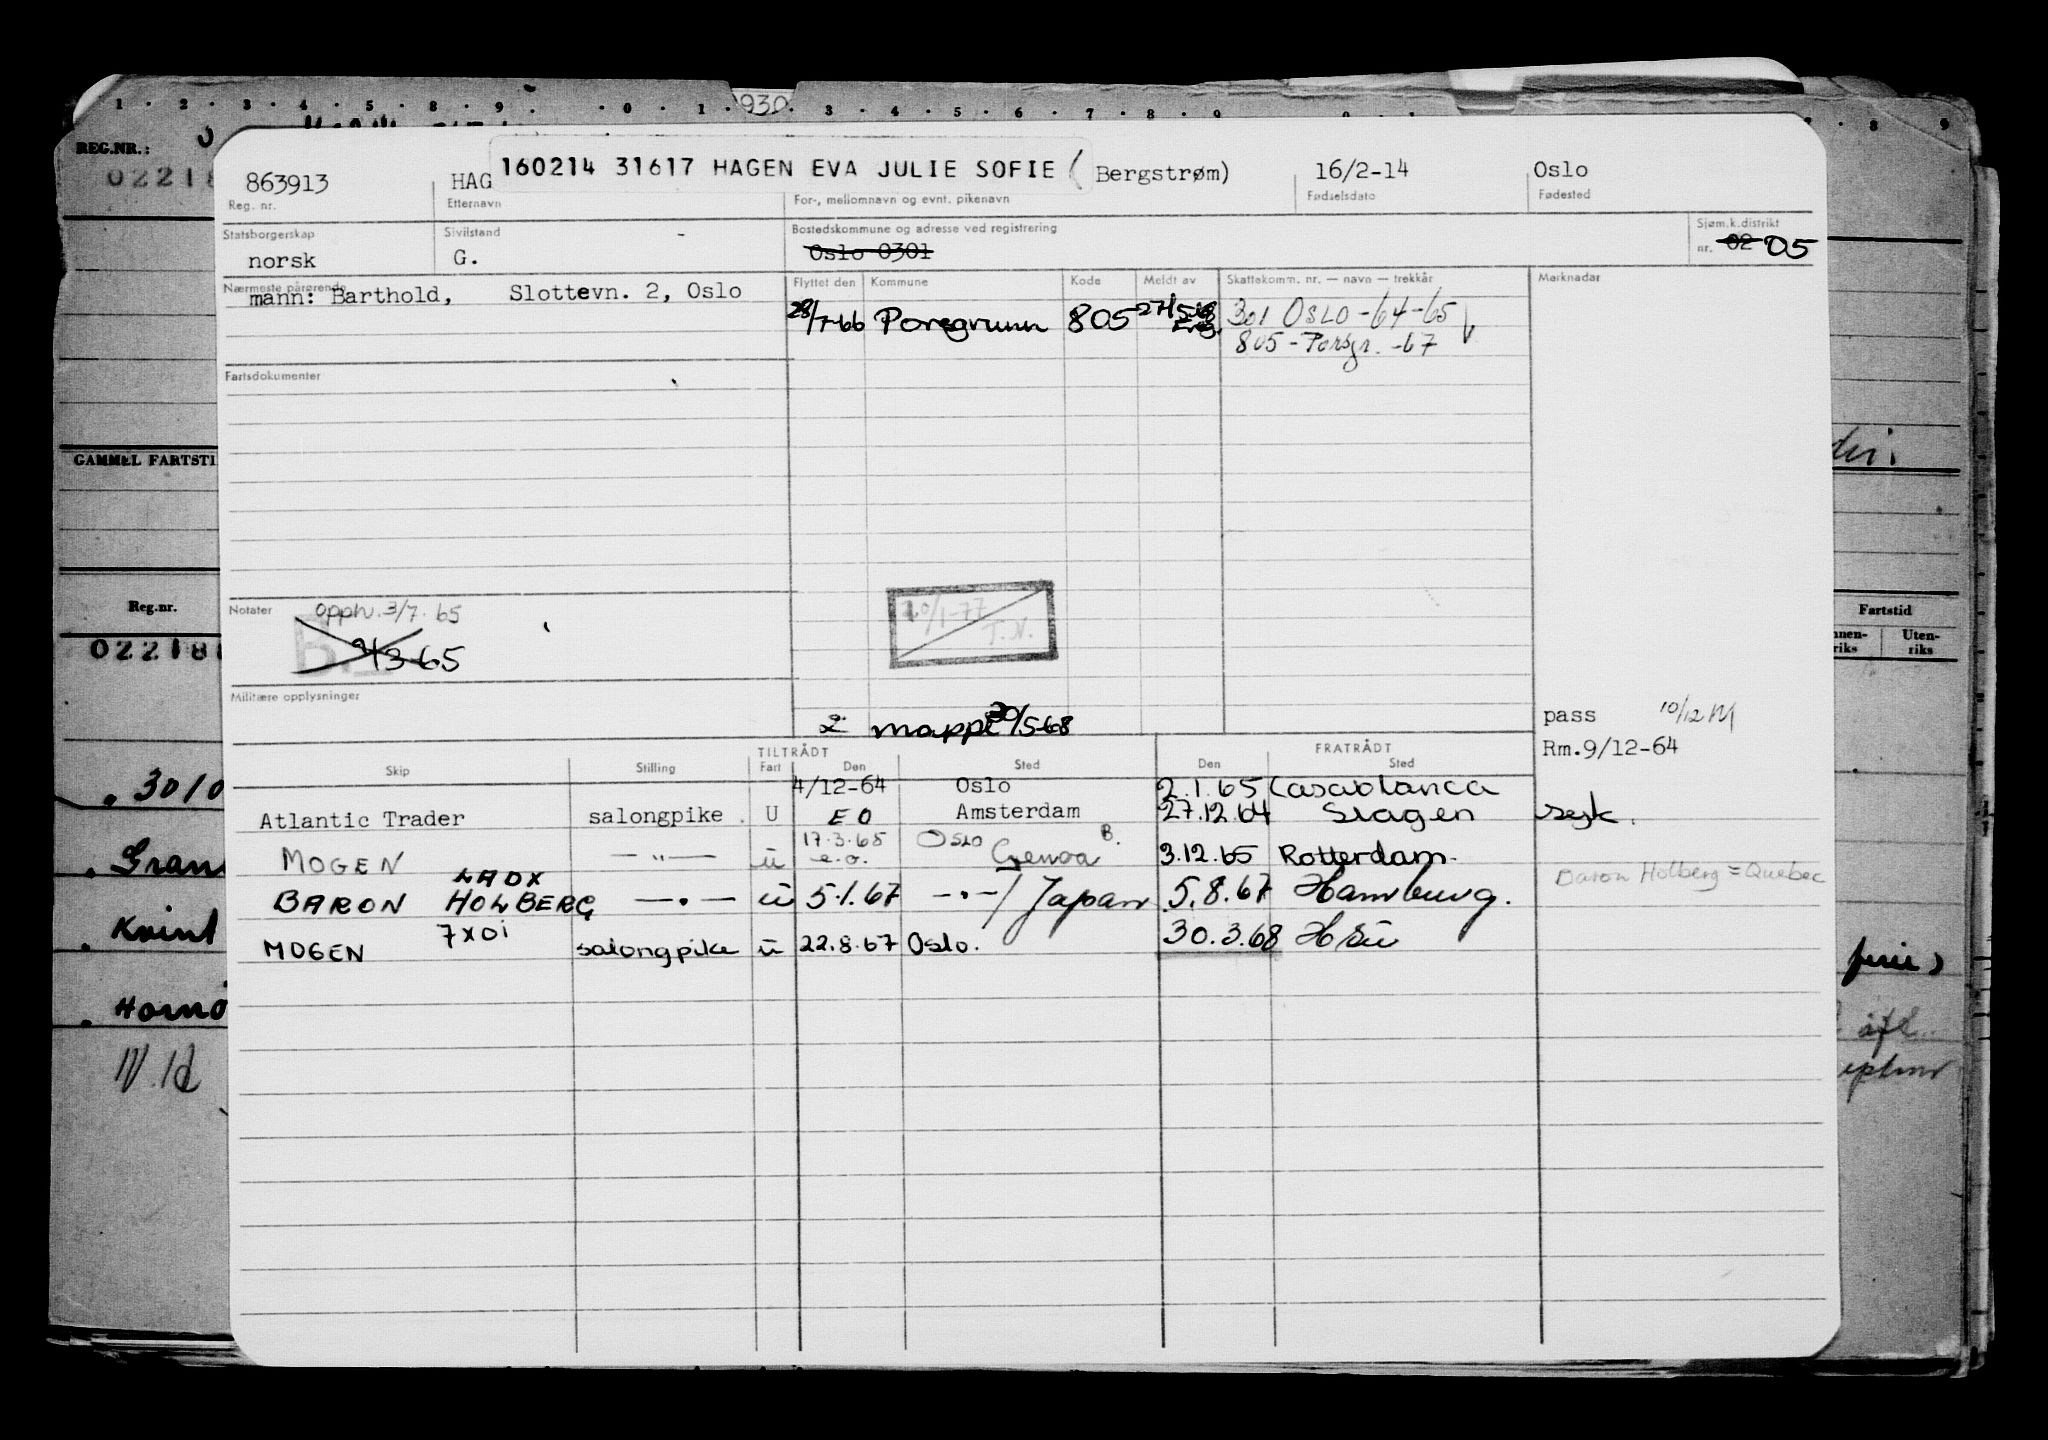 1 · 2 · 3 · 4 · 5 · 8 · 9 · 0 · 1 · 930 · 3 · 4 · 5 · 6 · 7 · 8 · 9 · 0 · 1 7 · 8 9
REG.NR.:
02218
863913 HAG 160214 31617 HAGEN EVA JULIE SOFIE (Bergstrøm) 16/2-14 Oslo
Reg. nr. Etternavn For-, mellomnavn og evnt. pikenavn Fødselsdato Fødested
Statsborgerskap Sivilstand Bostedskommune og adresse ved registrering Sjøm.k.distrikt
norsk G. Oslo 0301 nr. 02 05
Nærmeste pårørende Flyttet den Kommune Kode Meldt av Skattekomm. nr. — navn — trekkår Merknader
mann: Barthold, Slottevn. 2, Oslo
28/7-66 Porsgrunn 805 301 OSLO-64-65
805-Porsgr. -67
Fartsdokumenter
GAMMEL FARTSTI
Reg.nr. Fartstid
Notater opph. 3/7. 65
20/1-77
T.N.
nnen-riks Uten-riks
02218
Militære opplysninger
2 mappe 30/5-68
pass 10/12 M
Rm.9/12-64
TILTRÅDT FRATRÅDT
Skip Stilling Fart Den Sted Den Sted
4/12-64 Oslo 2.1.65 Casablanca
Atlantic Trader salongpike. U EO Amsterdam 27.12.64 Slagen
17.3.65 Oslo B.
MOGEN — " — u e.o. Genoa 3.12.65 Rotterdam.
LADX
BARON HOLBERG — " — u 5.1.67 — " — / Japan 5.8.67 Hamburg. Baron Holberg = Quebec
7XOI
MOGEN salongpike u 22.8.67 Oslo. 30.3.68
. 3010
. Gran
. Kvint
. Hornø